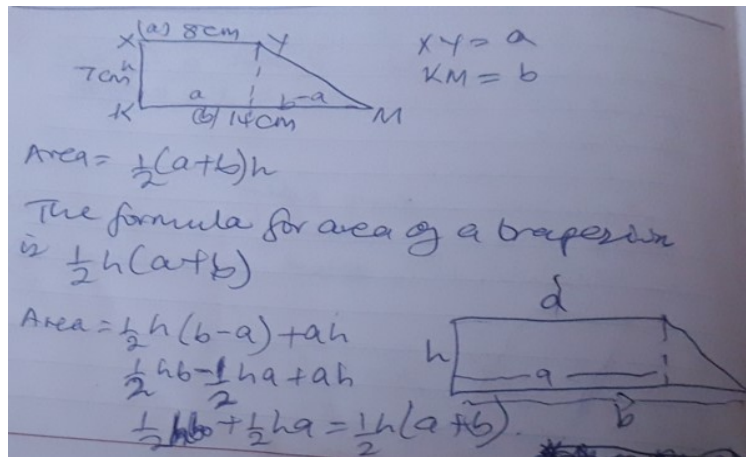 (a) 8cm
X Y
XY = a
7cm h
KM = b
a b-a
K (b) 14cm M
Area = 1/2(a+b)h
The formula for area of a trapezium
is 1/2 h(a+b)
Area = 1/2 h(b-a) + ah
1/2 hb - 1/2 ha + ah
1/2 hb + 1/2 ha = 1/2 h(a+b).
d
h
a
b